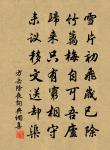 雪片初飛歲已除
竹籬梅自可吾廬
歸來只有窮相守
未議移文送却渠
方岳除夜詞典網集